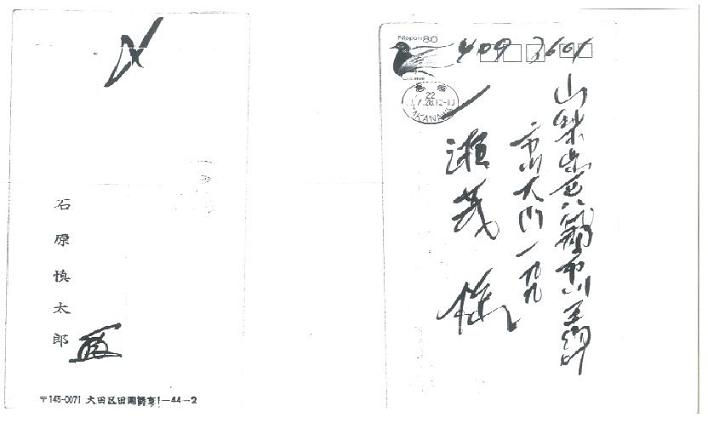 〆
石原慎太郎
〒145-0071 大田区田園調布1-44-2
Nippon 80
409 3601
22
TAKANAWA
山梨県西八代郡市川三郷町
市川大門一九九
一瀬茂様